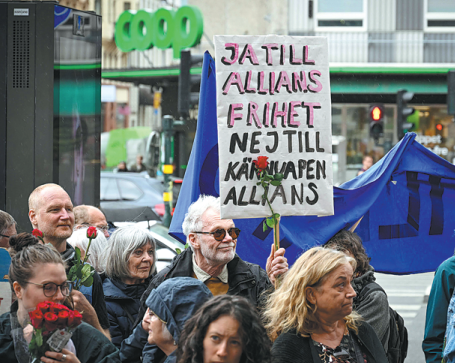 coop
JA TILL
ALLIANS
FRIHET
NEJ TILL
KÄRNVAPEN
ALLIANS